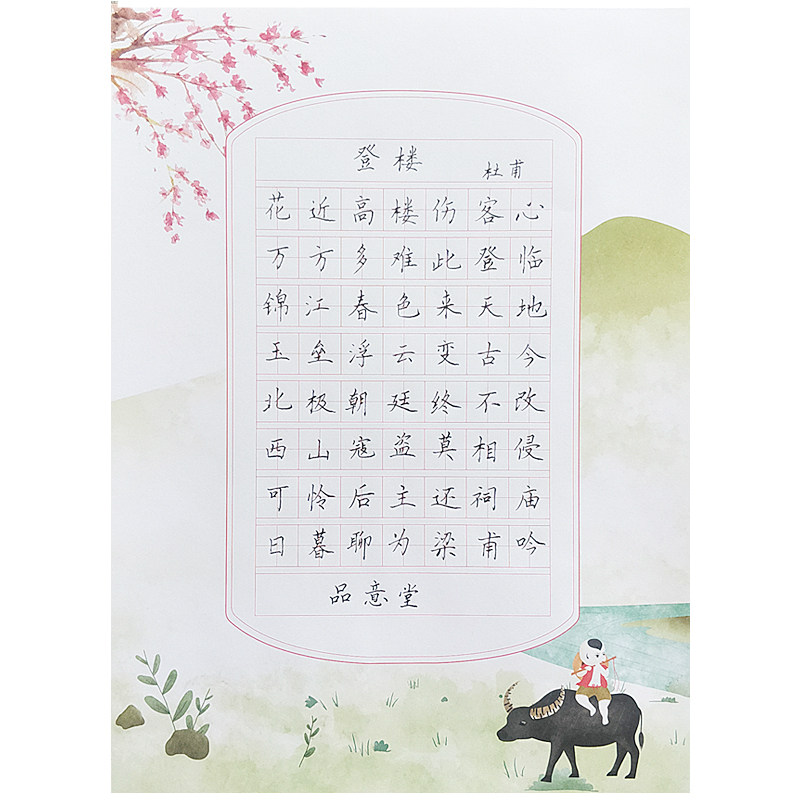 登楼
杜甫
花近高楼伤客心
万方多难此登临
锦江春色来天地
玉垒浮云变古今
北极朝廷终不改
西山寇盗莫相侵
可怜后主还祠庙
日暮聊为梁甫吟
品意堂